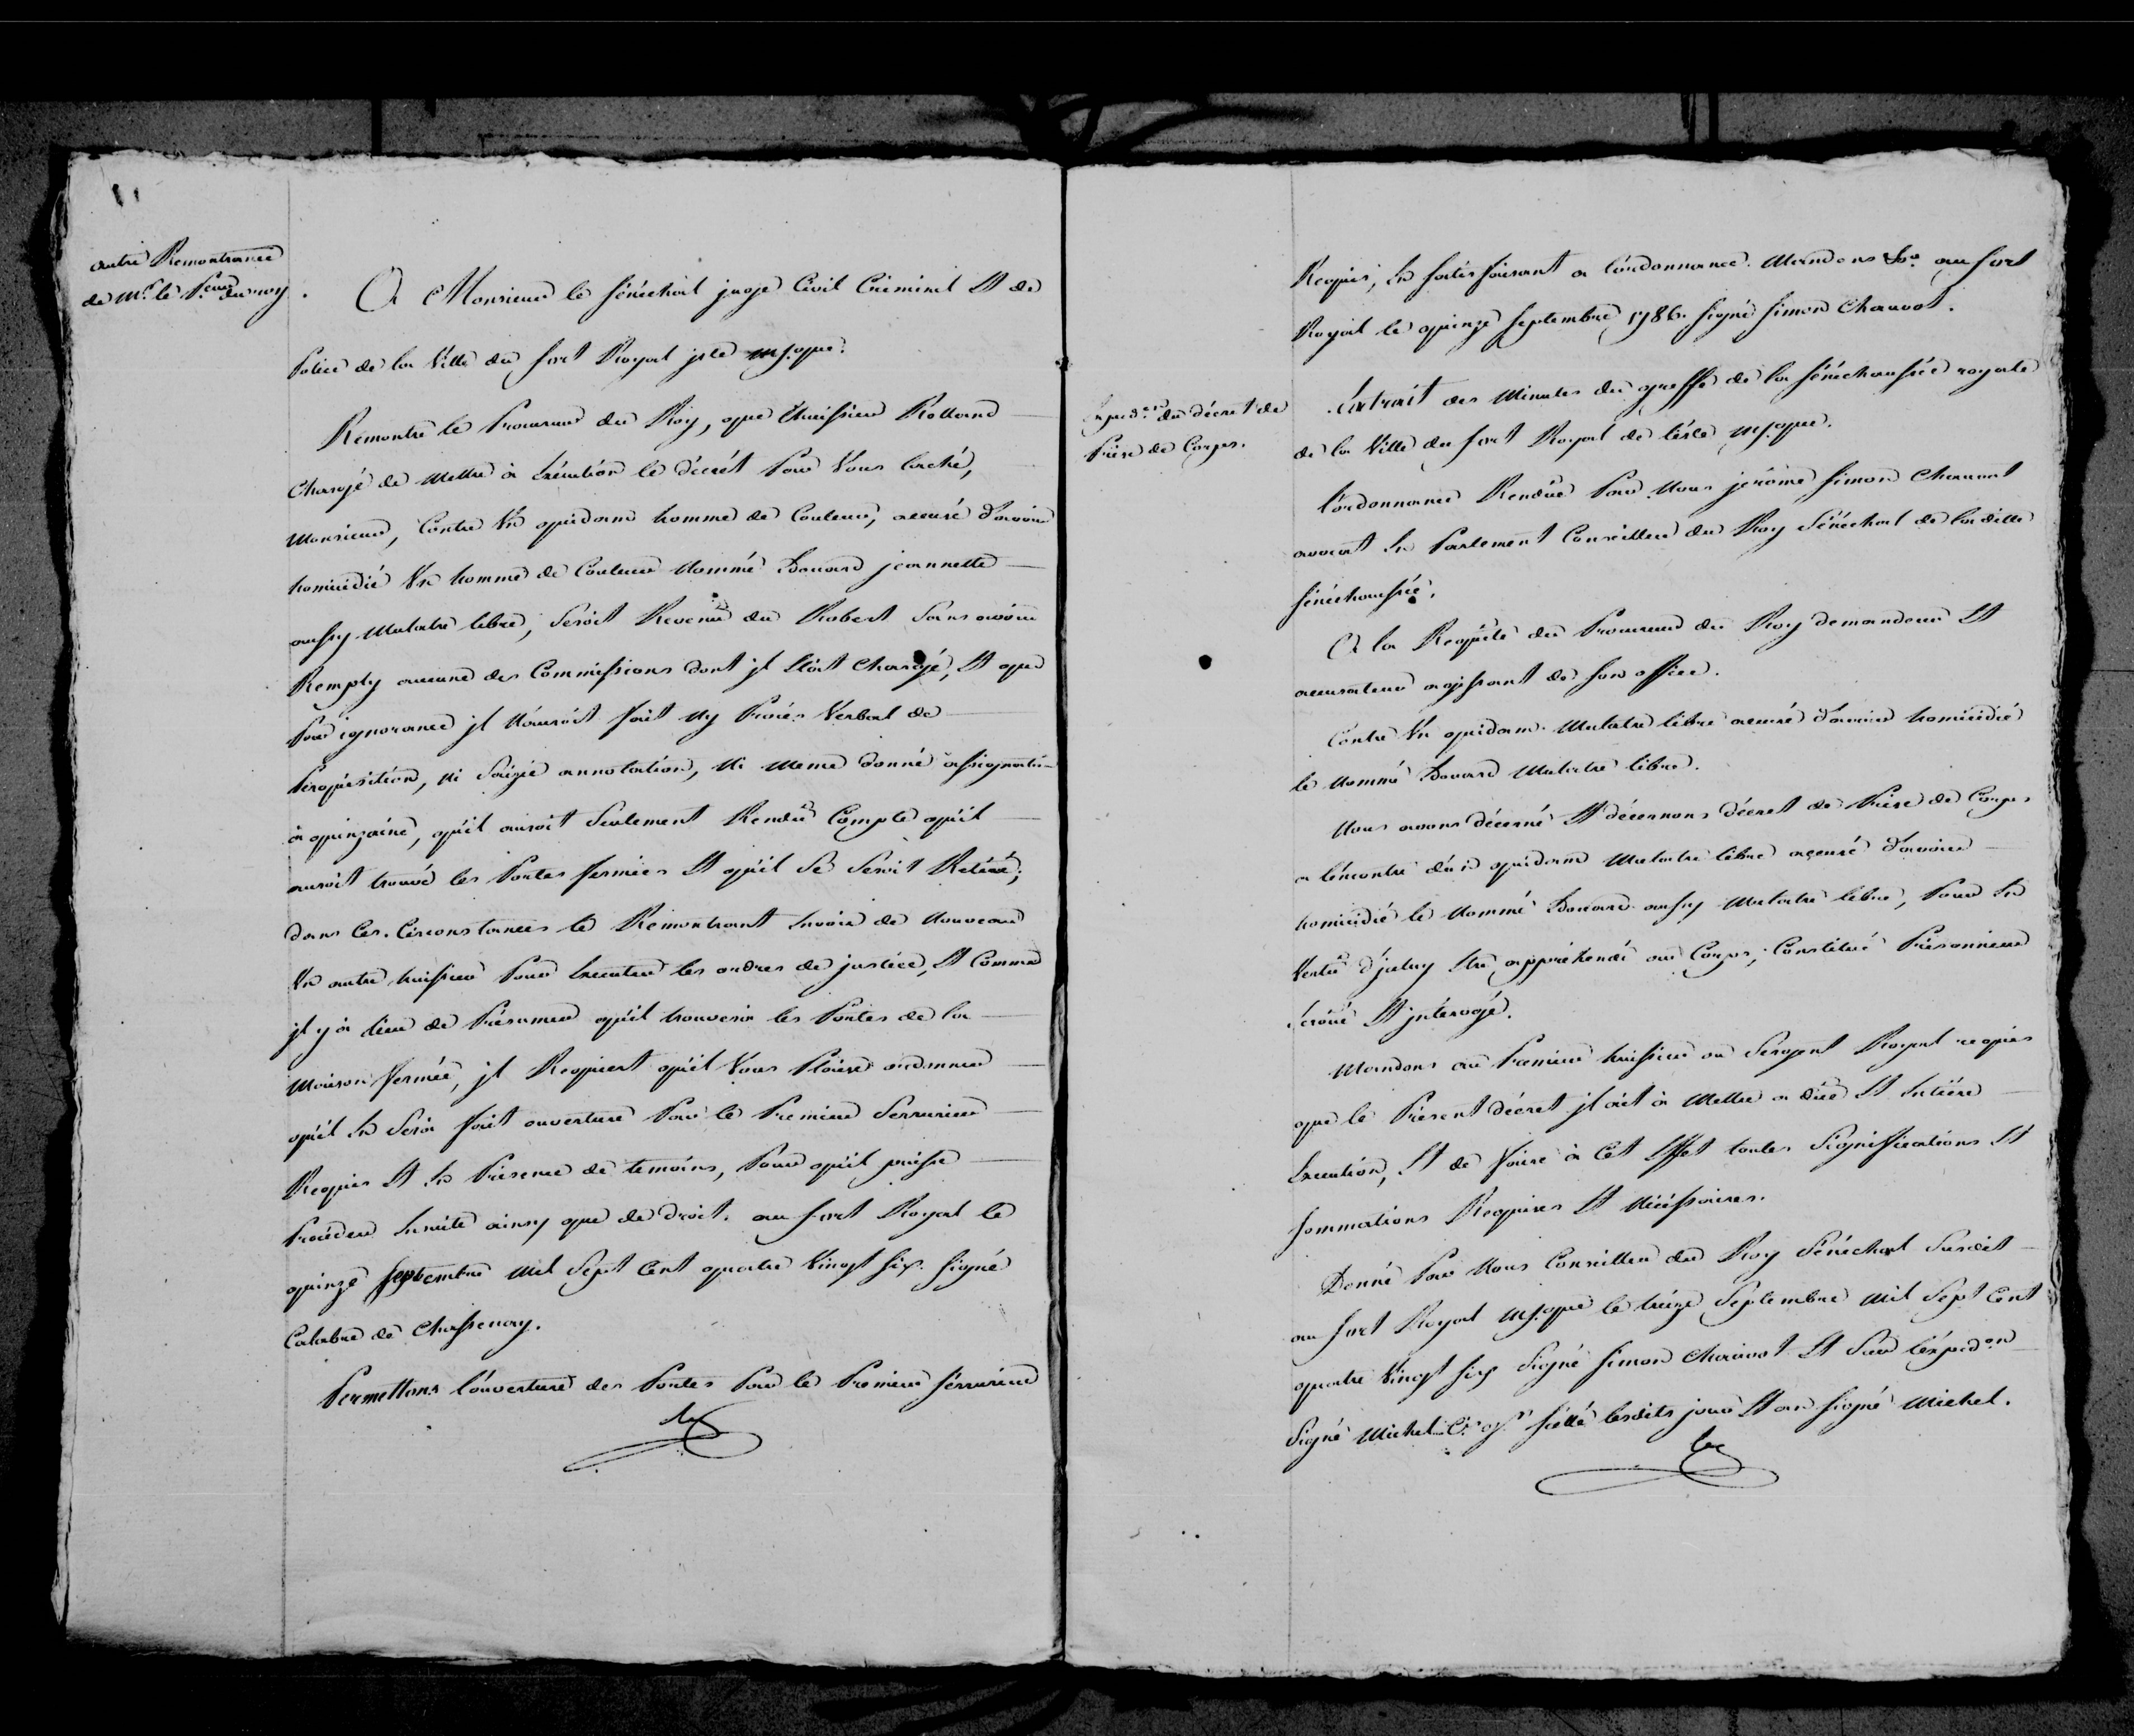 autre Remontrance
de Mr. le Peur du roy.
A Monsieur le sénéchal juge Civil Criminel Et de
Police de la Ville du fort Royal isle Mque.
Remontre le Procureur du Roy, que l'huissier Rolland
Chargé de Mettre à Exécution le décrét Par Vous laché,
Monsieur, Contre Un quidam homme de Couleur, accusé d'avoir
homicidié Un homme de Couleur Nommé Edouard jeannette
aussy Mulatre libre, Seroit Revenu du Robert Sans avoir
Remply aucune des Commissions dont jl Etoit Chargé, Et que
Par ignorance jl N'auroit fait Ny Procès Verbal de
Perquisition, Ni Saizie annotation, Ni meme donné assignation
à quinzaine, qu'il auroit Seulement Rendu Compte qu'il
auroit trouvé les Portes fermées Et qu'il Se Seroit Retiré;
dans Ces Circonstances le Remontrant Envoie de Nouveau
Un autre huissier Pour Executer les ordres de justice, Et Comme
jl y a lieu de Présumer qu'il trouvera les Portes de la
Maison fermée, jl Requiert qu'il Vous Plaise ordonner
qu'il En Sera fait ouverture Par le Premier Serrurier
Requis Et En Présence de temoins, Pour qu'il puisse
Procéder Ensuite ainsy que de droit. au fort Royal le
quinze septembre Mil Sept Cent quatre Vingt six. signé
Calabre de Chassenay.
Permettons l'ouverture des Portes Par le Premier sérrurier
Requis, En satisfaisant a l'ordonnance. Mandons &a. au fort
Royal le quinze septembre 1786. signé simon Chauvot.
Expedon. du décret de
Prise de Corps.
Extrait des Minutes du greffe de la sénéchaussée royale
de la Ville du fort Royal de l'isle Mque.
l'ordonnance Rendue Par Nous jérôme simon Chauvot
avocat En Parlement Conseiller du Roy Sénéchal de ladite
sénéchaussée.
A la Requête du Procureur du Roy demandeur Et
accusateur agissant de son office.
Contre Un quidam Mulatre libre accusé d'avoir homicidié
le Nommé Edouard Mulatre libre.
Nous avons décerné Et décernons décret de Prise de Corps
a lencontre d'un quidam Mulatre libre accusé d'avoir
homicidié le Nommé Edouard aussy Mulatre libre, Pour En
Vertu d'jceluy Etre appréhendé au Corps, Constitué Prisonnier
Ecroüé Et jntérogé.
Mandons au Premier huissier ou Sergent Royal requis
que le Présent décret jl ait à Mettre a düe Et Entiére
Execution, Et de faire à Cet Effet toutes Significations Et
sommations Requises Et Nécéssaires.
Donné Par Nous Conseiller du Roy Sénéchal Susdit
au fort Royal Mque le treize Septembre Mil Sept Cent
quatre Vingt six Signé simon Chauvot Et Sur l'expedon
Signé Michel Cis. gr. scéllé lesdits jour Et an signé Michel.